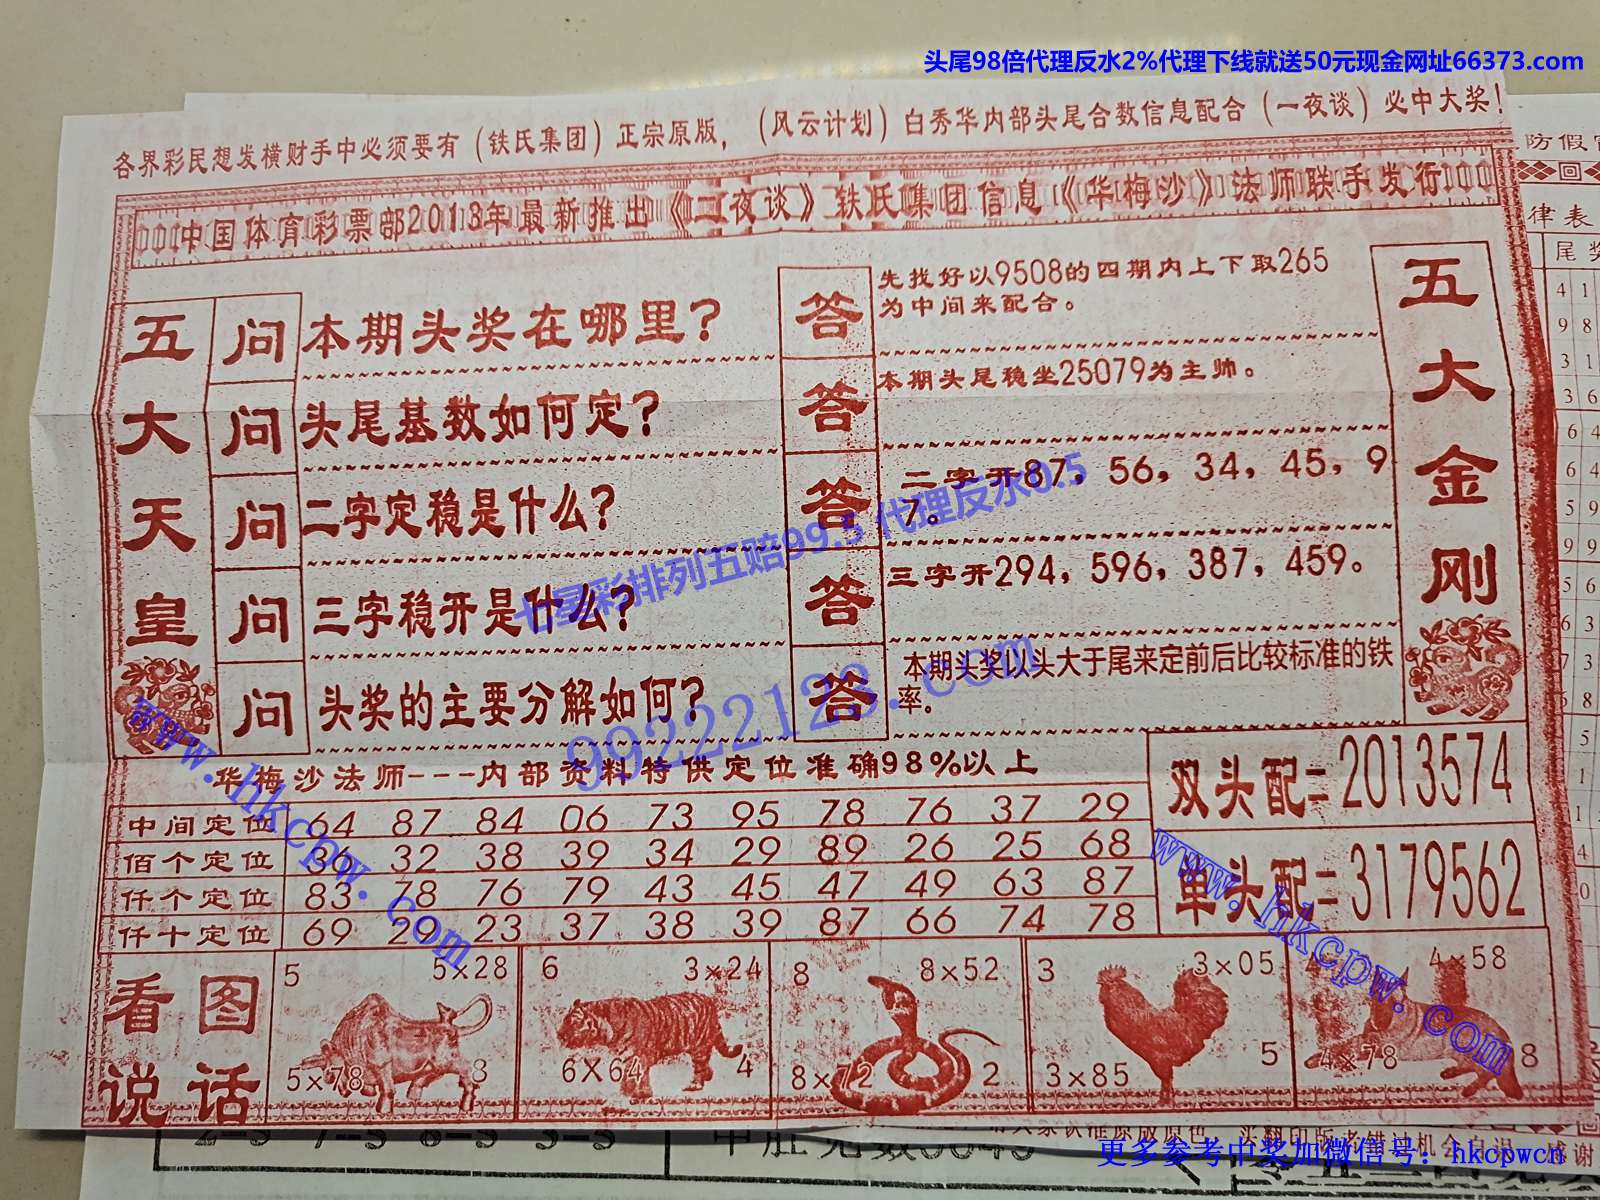 头尾98倍代理反水2%代理下线就送50元现金网址66373.com
各界彩民想发横财手中必须要有（铁氏集团）正宗原版，（风云计划）白秀华内部头尾合数信息配合（一夜谈）必中大奖！
中国体育彩票部2013年最新推出《一夜谈》铁氏集团信息《华梅沙》法师联手发行
五大天皇
问 本期头奖在哪里？
答 先找好以9508的四期内上下取265
为中间来配合。
问 头尾基数如何定？
答 本期头尾稳坐25079为主帅。
问 二字定稳是什么？
答 二字开87，56，34，45，9
7。
问 三字稳开是什么？
答 三字开294，596，387，459。
问 头奖的主要分解如何？
答 本期头奖以头大于尾来定前后比较标准的铁
率。
五大金刚
七星彩排列五赔99.5 代理反水0.5
99222123.com
华梅沙法师---内部资料特供定位准确98%以上
中间定位 64 87 84 06 73 95 78 76 37 29
佰个定位 36 32 38 39 34 29 89 26 25 68
仟个定位 83 78 76 79 43 45 47 49 63 87
仟十定位 69 29 23 37 38 39 87 66 74 78
双头配=2013574
单头配=3179562
www.hkcpw.com
www.hkcpw.com
看图
说话
5 5×28
5×78 8
6 3×24
6×64 4
8 8×52
8×72 2
3 3×05
3×85 5
4×58
4×78 8
防假
律表
尾 奖
4 1
9 8
3 1
3 6
6 4
6 4
5 9
9 9
5 6
6 3
7 3
6 8
5
1
1
4
0
更多参考中奖加微信号：hkcpwcn
感谢